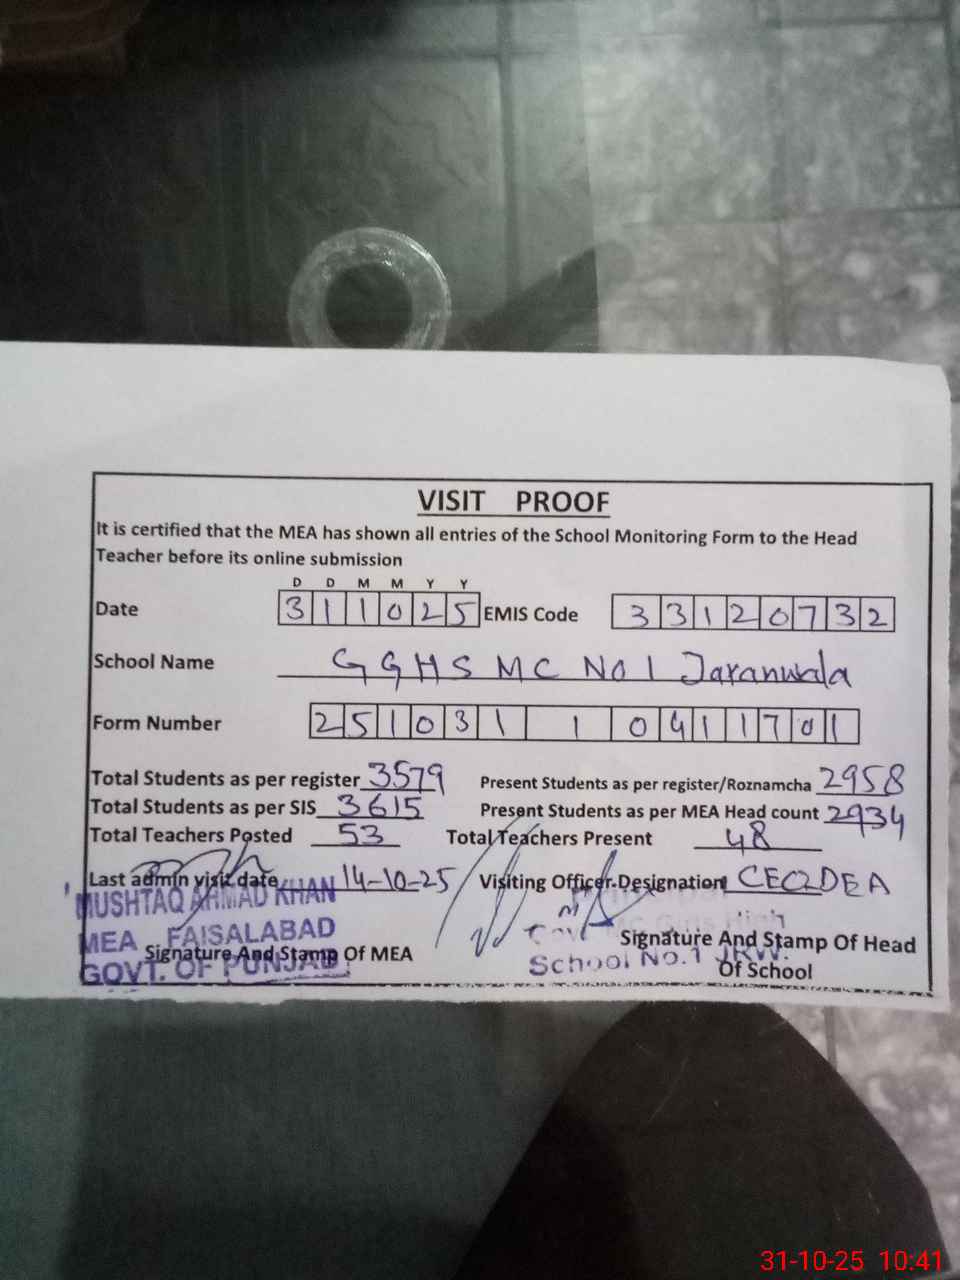 VISIT PROOF
It is certified that the MEA has shown all entries of the School Monitoring Form to the Head
Teacher before its online submission
D D M M Y Y
Date 311025 EMIS Code 33120732
School Name GGHS MC NO 1 Jaranwala
Form Number 251031 1 0411701
Total Students as per register 3579 Present Students as per register/Roznamcha 2958
Total Students as per SIS 3615 Present Students as per MEA Head count 2934
Total Teachers Posted 53 Total Teachers Present 48
Last admin visit date 14-10-25 Visiting Officer Designation CEO DEA
MUSHTAQ AHMAD KHAN
MEA FAISALABAD
GOVT. OF PUNJAB
Signature And Stamp Of MEA
Principal
Govt Mc Girls High
School No.1 JRW.
Signature And Stamp Of Head
Of School
31-10-25 10:41